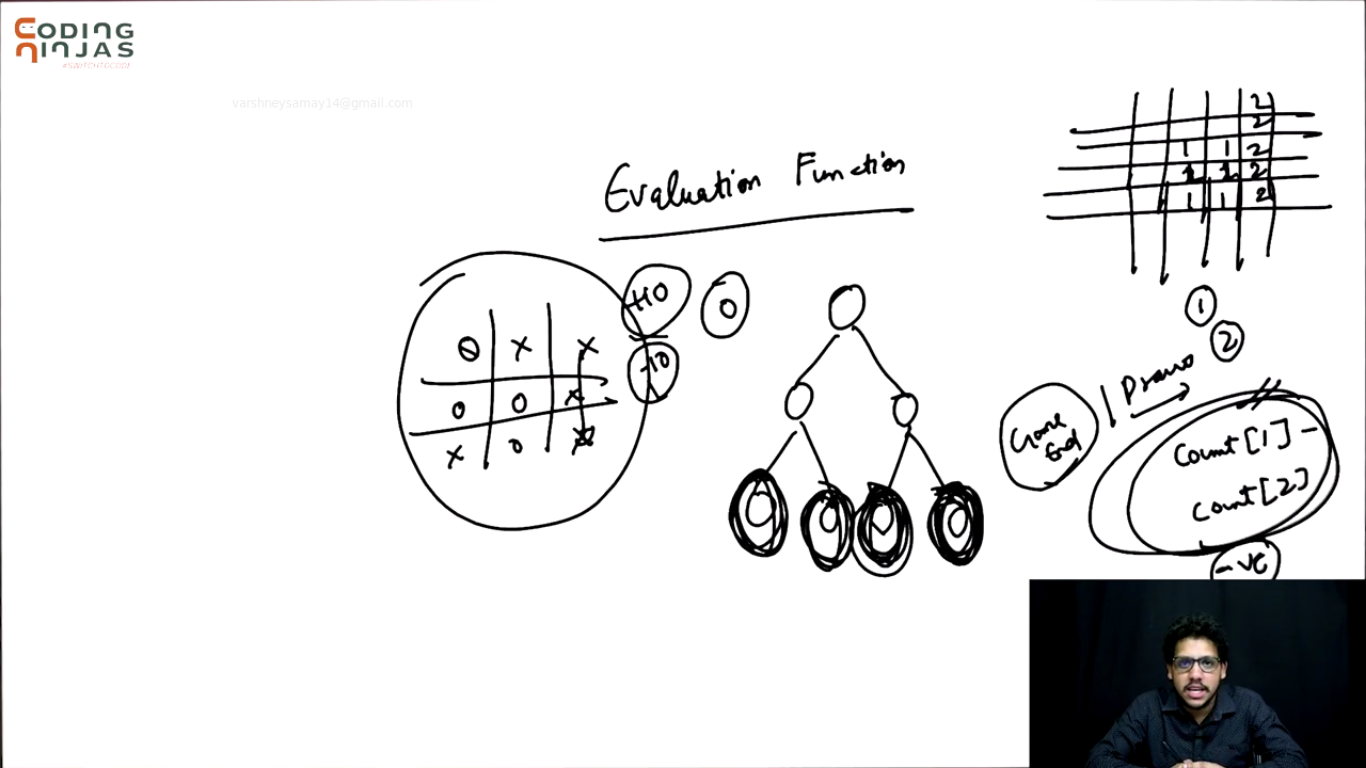 CODING
NINJAS
#SWITCHTOCODE
varshneysamay14@gmail.com
Evaluation Function
+10 0
-10
O X X
O O X
X O
2
2
1 1 2
1 1 2
1 1 2
1
2
Game
End
Draw
Count[1] -
Count[2]
-ve